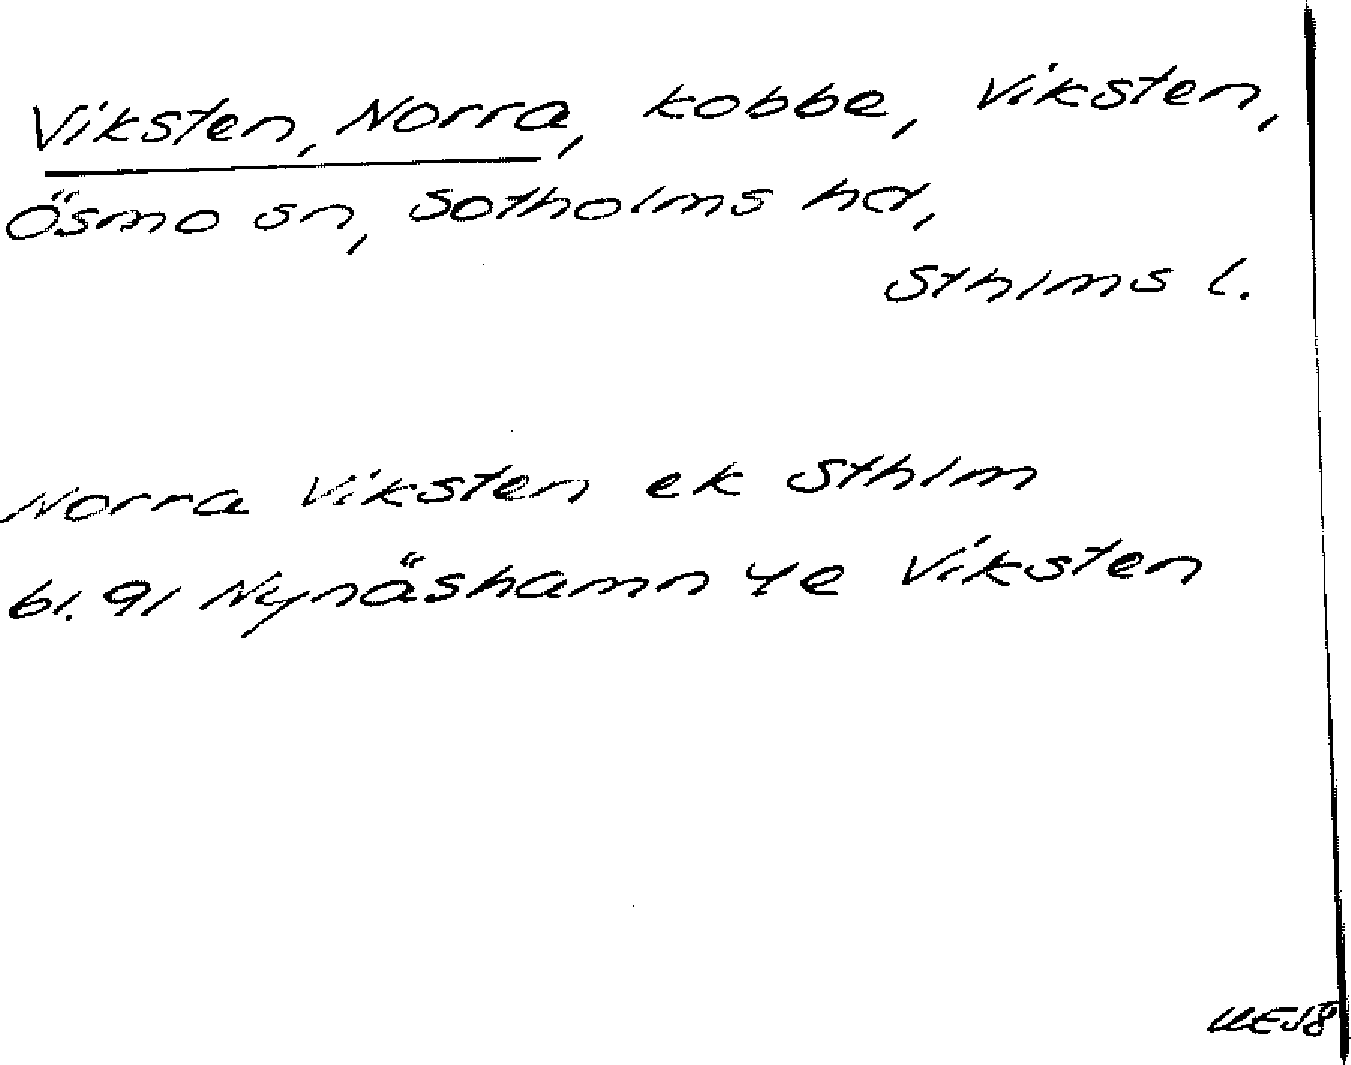 Viksten, Norra, kobbe, Viksten,
Ösmo sn, Sotholms hd,
Sthlms l.
Norra Viksten ek Sthlm
bl. 91 Nynäshamn 4e Viksten